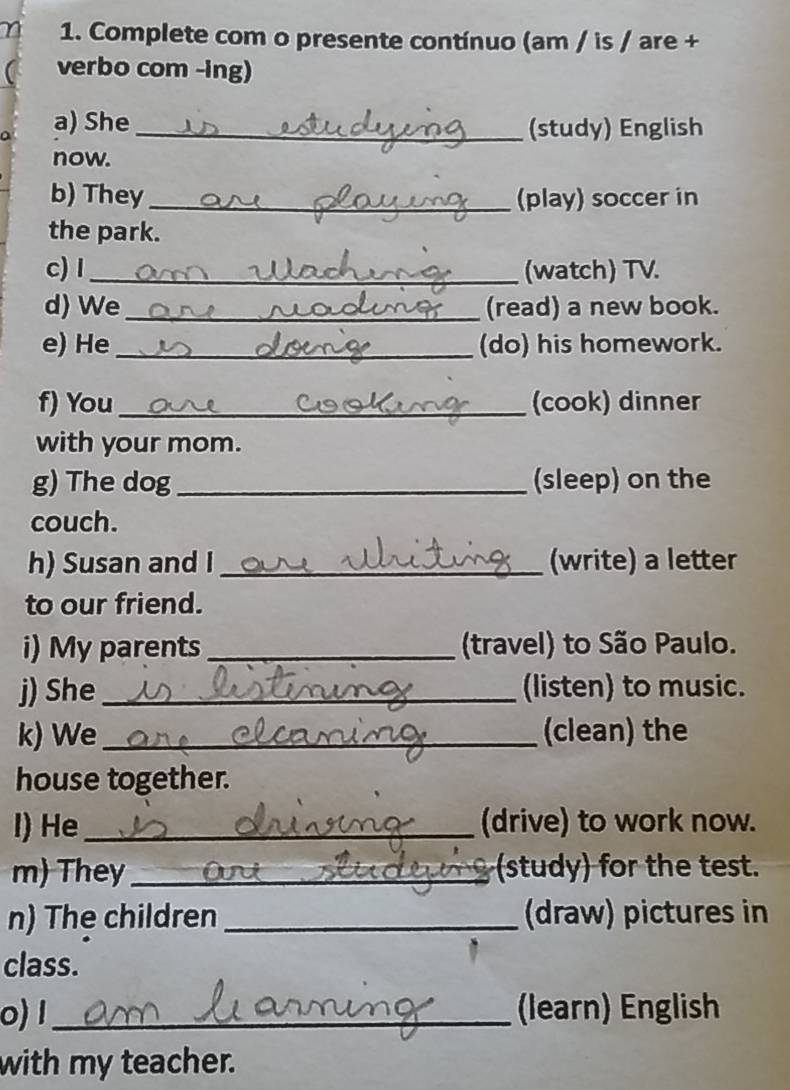 1. Complete com o presente contínuo (am / is / are +
verbo com -ing)
a) She is estudyeing (study) English
now.
b) They are playing (play) soccer in
the park.
c) I am waching (watch) TV.
d) We are reading (read) a new book.
e) He is doing (do) his homework.
f) You are cooking (cook) dinner
with your mom.
g) The dog ____________ (sleep) on the
couch.
h) Susan and I are writing (write) a letter
to our friend.
i) My parents ____________ (travel) to São Paulo.
j) She is listining (listen) to music.
k) We are elcaning (clean) the
house together.
l) He is driving (drive) to work now.
m) They are studeying (study) for the test.
n) The children ____________ (draw) pictures in
class.
o) I am learning (learn) English
with my teacher.